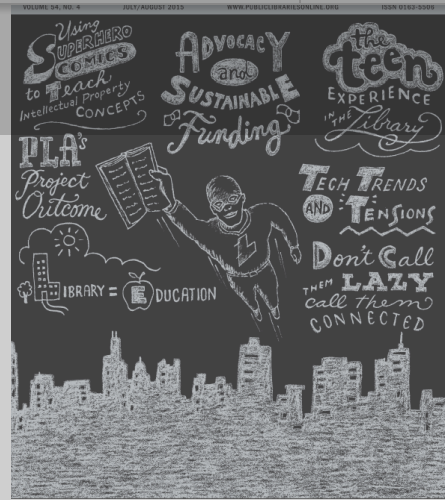 VOLUME 54, NO. 4 JULY/AUGUST 2015 WWW.PUBLICLIBRARIESONLINE.ORG ISSN 0163-5506
Using
SUPERHERO
COMICS
to Teach
Intellectual Property
CONCEPTS
ADVOCACY
and
SUSTAINABLE
Funding
the
teen
EXPERIENCE
IN THE Library
PLA's
Project
Outcome
TECH TRENDS
AND TENSIONS
LIBRARY = EDUCATION
L
Don't Call
THEM LAZY
call them
CONNECTED